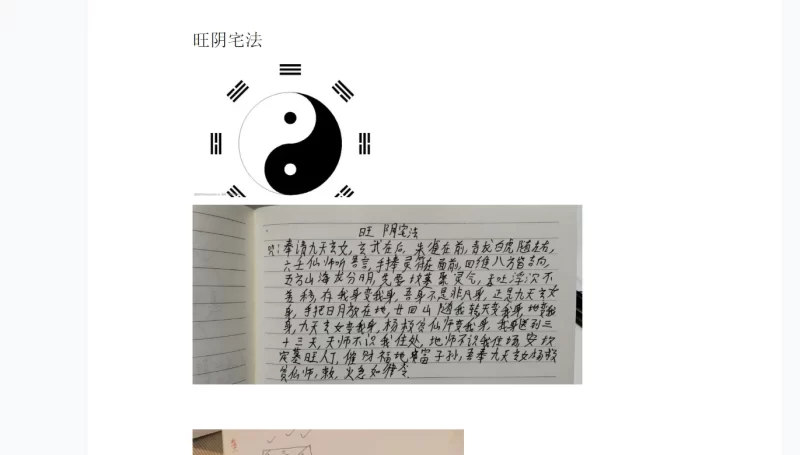 旺阴宅法
旺 阴宅法
咒:奉请九天玄女,玄武在后,朱雀在前,青龙白虎随左右,
六壬仙师听吾言,手持灵符在面前,四维八方皆吉向,
五方山海龙分明,先要坟墓聚灵气,吉吐浮沉不
差移,存我身变我身,吾身不是非凡身,正是九天玄女
身,手把日月放在地,廿四山随我转天变我身地变我
身,九天玄女变我身,杨救贫仙师变我身,我身送到三
十三天,天师不识我住处,地师不识我住场,安坟
定墓旺人丁,催财福地富子孙,吾奉九天玄女杨救
贫仙师,敕,火急如律令